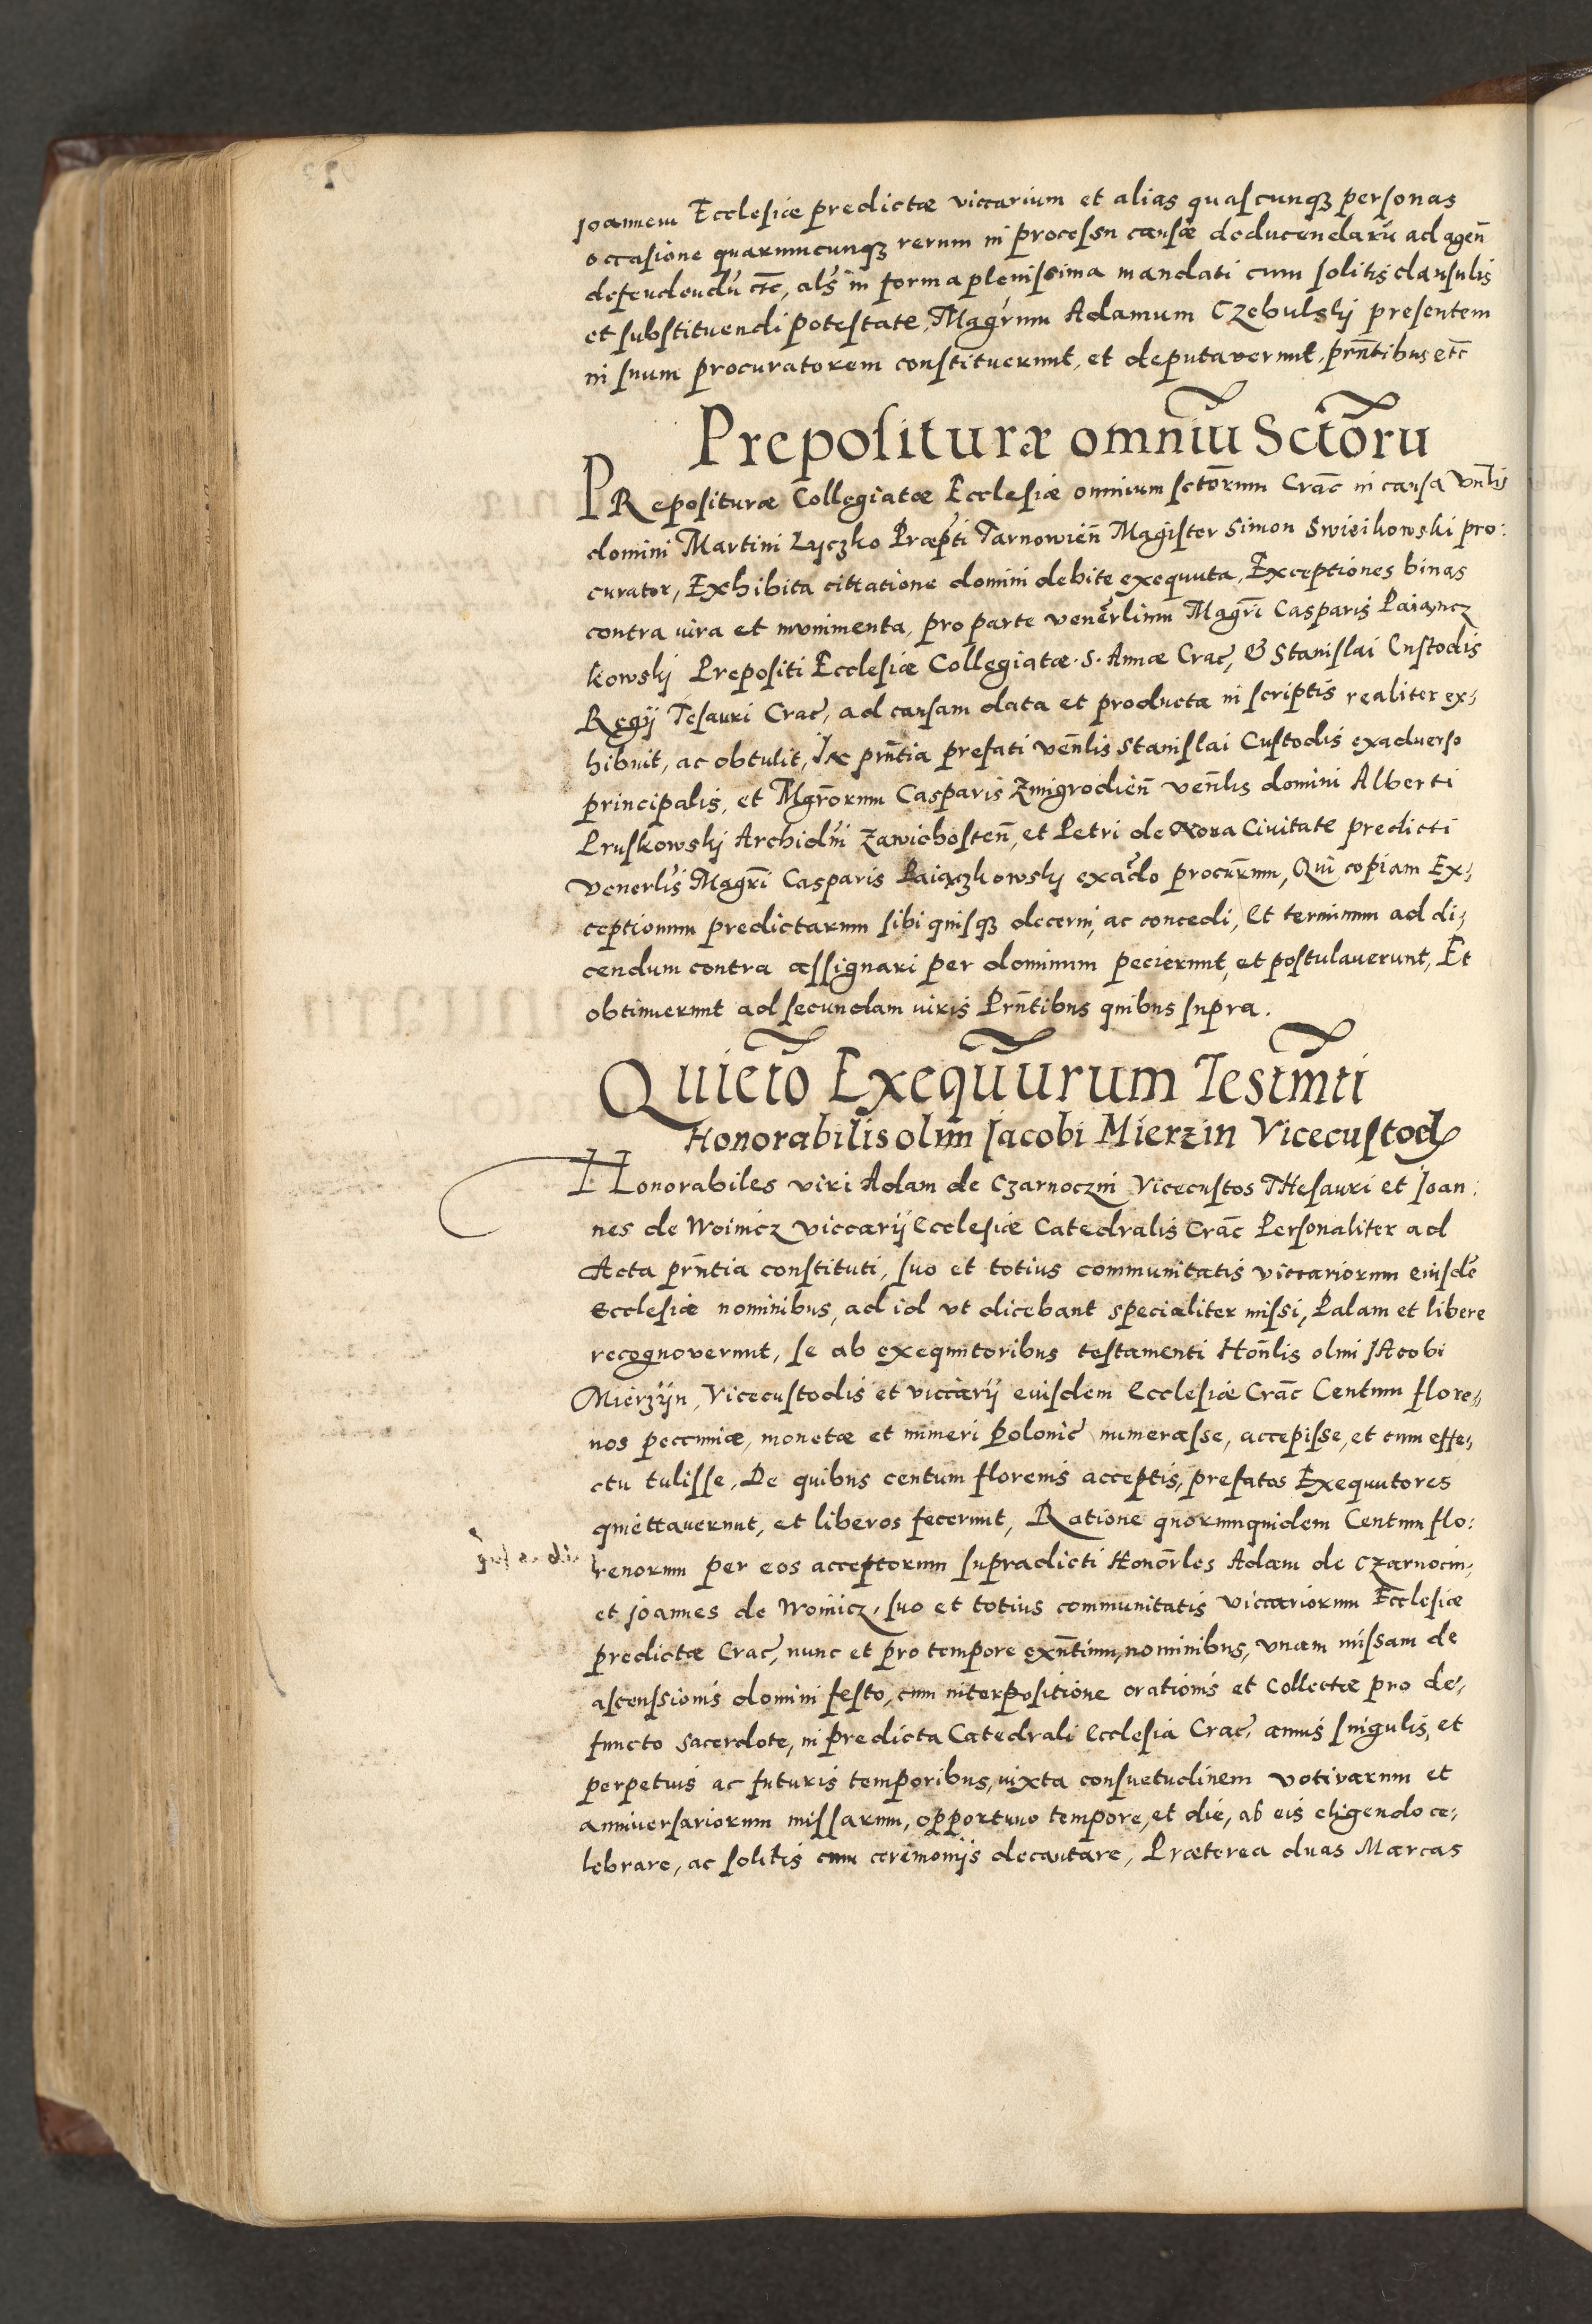 Joannem Ecclesiæ predictæ viccarium et alias quascunqꝫ personas
occasione quarumcunqꝫ rerum in processu causæ deducendarū ad agen̄
defendendū etc̄, als̄ in forma plenissima mandati cum solitis clausulis
et substituendi potestate, Magr̄um Adamum Czebulskij presentem
in suum procuratorem constituerunt, et deputaverunt, prn̄tibus etc̄
Prepositurae omniū Sctōru
PRepositurae Collegiatæ Ecclesiæ omnium sctōrum Crac̄ in causa Vnl̄is
domini Martini Lyczko Præpti Tarnowien̄ Magister Simon Swieikowski pro:
curator, Exhibita cittatione domini debite exequuta, Exceptiones binas
contra iura et munimenta, pro parte venerlium Magr̄i Casparis Paiąncz
kowskj Prepositi Ecclesiæ Collegiatæ S. Annæ Crac̄, & Stanislai Custodis
Regij Tesauri Crac̄, ad causam data et producta in scriptis realiter ex,
hibuit, ac obtulit, In prn̄tia prefati ven̄lis Stanislai Custodis exaduerso
principalis, et Mgrōrum Casparis Zmigrodien̄ ven̄lis domini Alberti
Pruskowskj Archidn̄i Zawichosten̄, et Petri de Nova Civitate predicti
venerlis̄ Magr̄i Casparis Paiączkowskj exad̄o procur̄um, Qui copiam Ex,
ceptionum predictarum sibi quisqꝫ decerni, ac concedi, Et terminum ad di,
cendum contra assignari per dominum pecierunt, et postulauerunt, Et
obtinuerunt ad secundam iuris Prn̄tibus quibus supra.
Quietō Exequūurum Testm̄ti
Honorabilis olim Jacobi Mierzin Vicecustod
Honorabiles viri Adam de Czarnoczin Vicecustos THesauri et Joan:
nes de Woinicz viccarij Ecclesiæ Catedralis Crac̄ Personaliter ad
Acta prn̄tia constituti, suo et totius communitatis viccariorum eiusdē
Ecclesiæ nominibus, ad id vt dicebant specialiter missi, Palam et libere
recognoverunt, se ab exequutoribus testamenti Hon̄lis olim JAcobi
Mierzijn, Vicecustodis et viccarij eiusdem Ecclesiæ Crac̄ Centum flore,
nos peccuniæ, monetæ et numeri Polonic̄ numerasse, accepisse, et cum effe,
ctu tulisse, De quibus centum florenis acceptis, prefatos Exequutores
quiettauerunt, et liberos fecerunt, Ratione quorumquidem Centum flo:
renorum per eos acceptorum supradicti Honōrles Adam de Czarnocin,
et Joannes de Woinicz, suo et totius communitatis viccariorum Ecclesiæ
predictæ Crac̄, nunc et pro tempore exn̄tium, nominibus, vnam missam de
ascenssionis domini festo, cum interpositione orationis et Collectæ pro de,
functo sacerdote, in predicta Catedrali Ecclesia Crac̄, annis singulis, et
perpetuis ac futuris temporibus, iuxta consuetudinem votivarum et
anniversariorum missarum, opportuno tempore, et die, ab eis eligendo ce,
lebrare, ac solitis cum ceremonijs decantare, Præterea duas Marcas